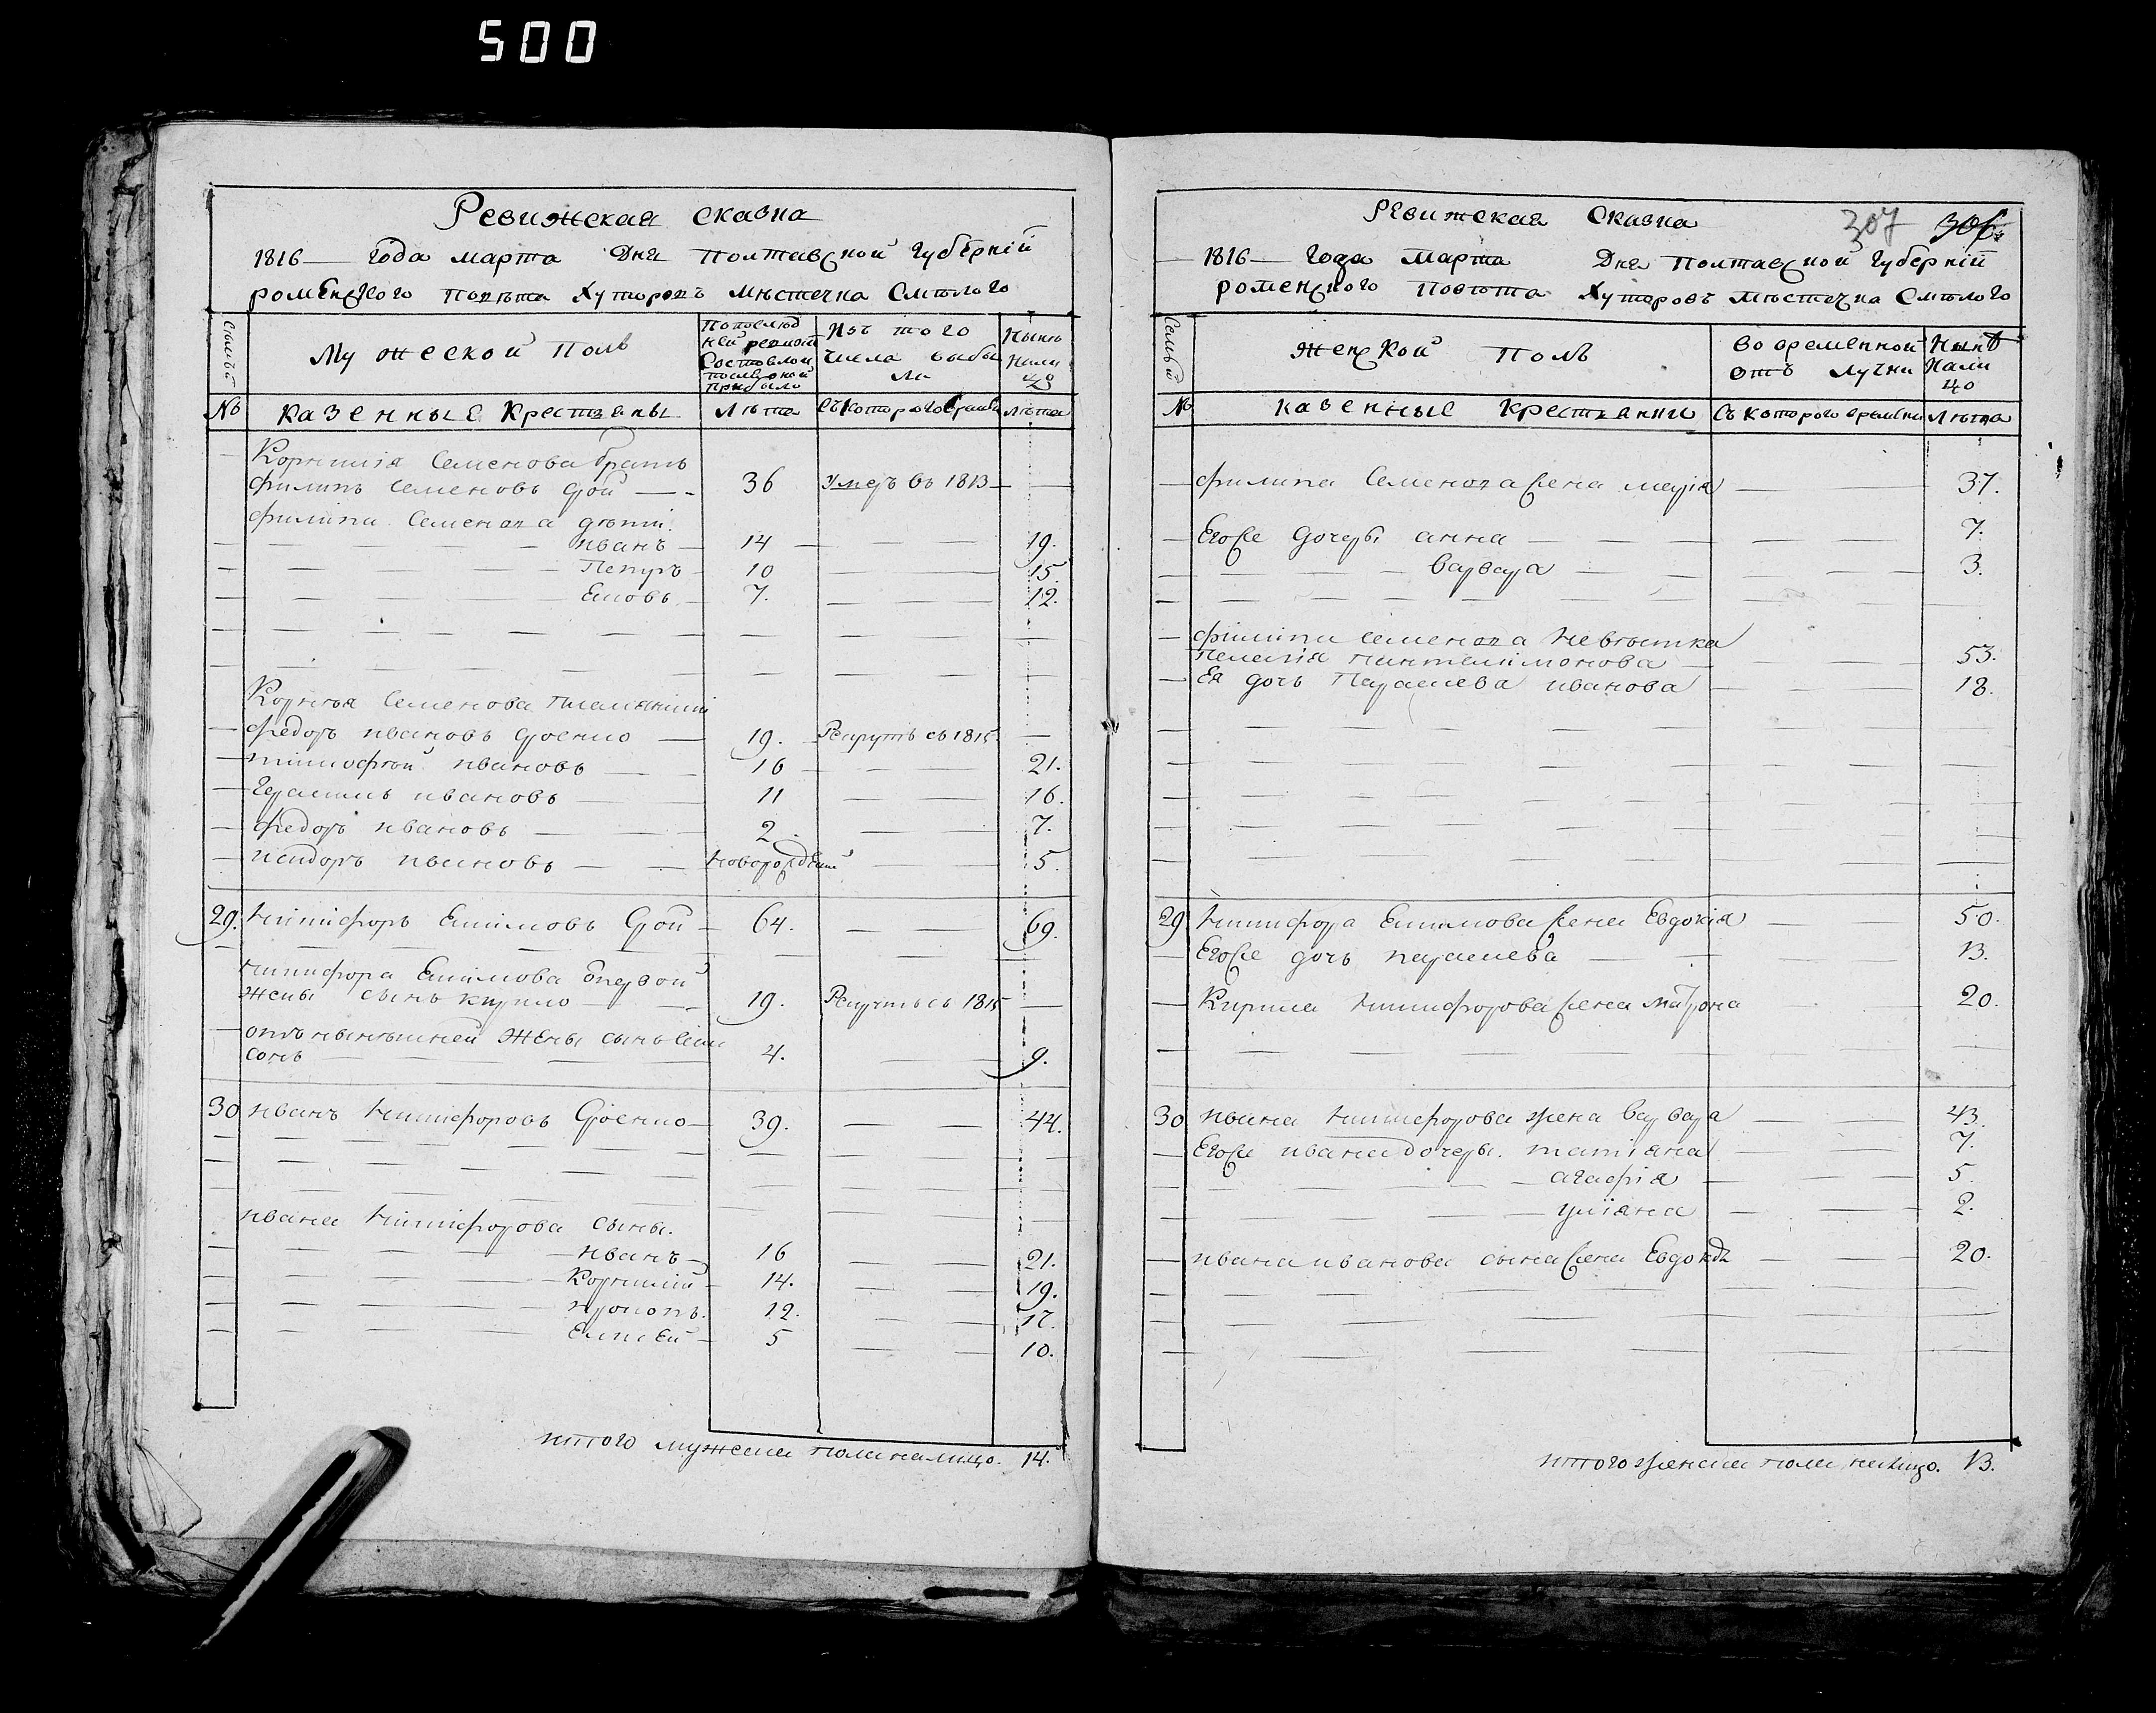 500
Ревижская сказка
1816 — года марта Дня Полтавской Губерніи
роменского Повѣта Хуторовъ Мѣстечка Смѣлого
Семьи
Мужеской Полъ
По послѣд
ней ревизіи
Состояло и
после оной
прибыло
Изъ того
числа выбы
ло
Нынѣ
Нали
цо
№
казенные крестьяны
Лѣта
съ которого времени
лѣта
Корнилія Семенова братъ
филипъ Семеновъ 36 умеръ въ 1813
филипа Семенова дѣти:
иванъ 14 19.
Петръ 10 15.
7. 12.
Семенова племянники
федоръ ивановъ 19. Рекрутъ съ 1815
тимофей ивановъ 16 21.
Герасимъ ивановъ 11 16.
федоръ ивановъ 2. 7.
исидоръ ивановъ новорожденый 5.
29. Никифоръ Ефимовъ 64. 69.
Никифора Ефимова
жены сынъ кирило 19. Рекрутъ съ 1815
отъ нынѣшней жены сынъ
4. 9.
30 иванъ Никифоровъ 39. 44.
ивана Никифорова сыны.
иванъ 16 21.
Корнилій 14. 19.
прокопъ. 12. 17.
Елисей 5 10.
итого мужеска пола налицо. 14.
Ревижская Сказка 307
1816 — Года Марта Дня Полтавской Губерніи
роменского Повѣта Хуторовъ Мѣстечка Смѣлого
Семьи
Женской Полъ
Во временной
отъ лучки
Нынѣ
Нали
цо
№
казенные крестьянки
съ которого времени
Лѣта
филипа Семенова жена марія 37.
Егоже дочеры анна 7.
варвара 3.
филипа семенова невѣстка
пелагія пантелимонова 53.
Ея дочь Параскева иванова 18.
29 Никифора Ефимова жена Евдокія 50.
Егоже дочь параскева 13.
Кирила Никифорова жена матрона 20.
30 ивана Никифорова жена варвара 43.
Егоже ивана дочеры. татіяна 7.
агафія 5.
уліяна 2.
ивана иванова сына жена 20.
итого женска пола налицо. 13.